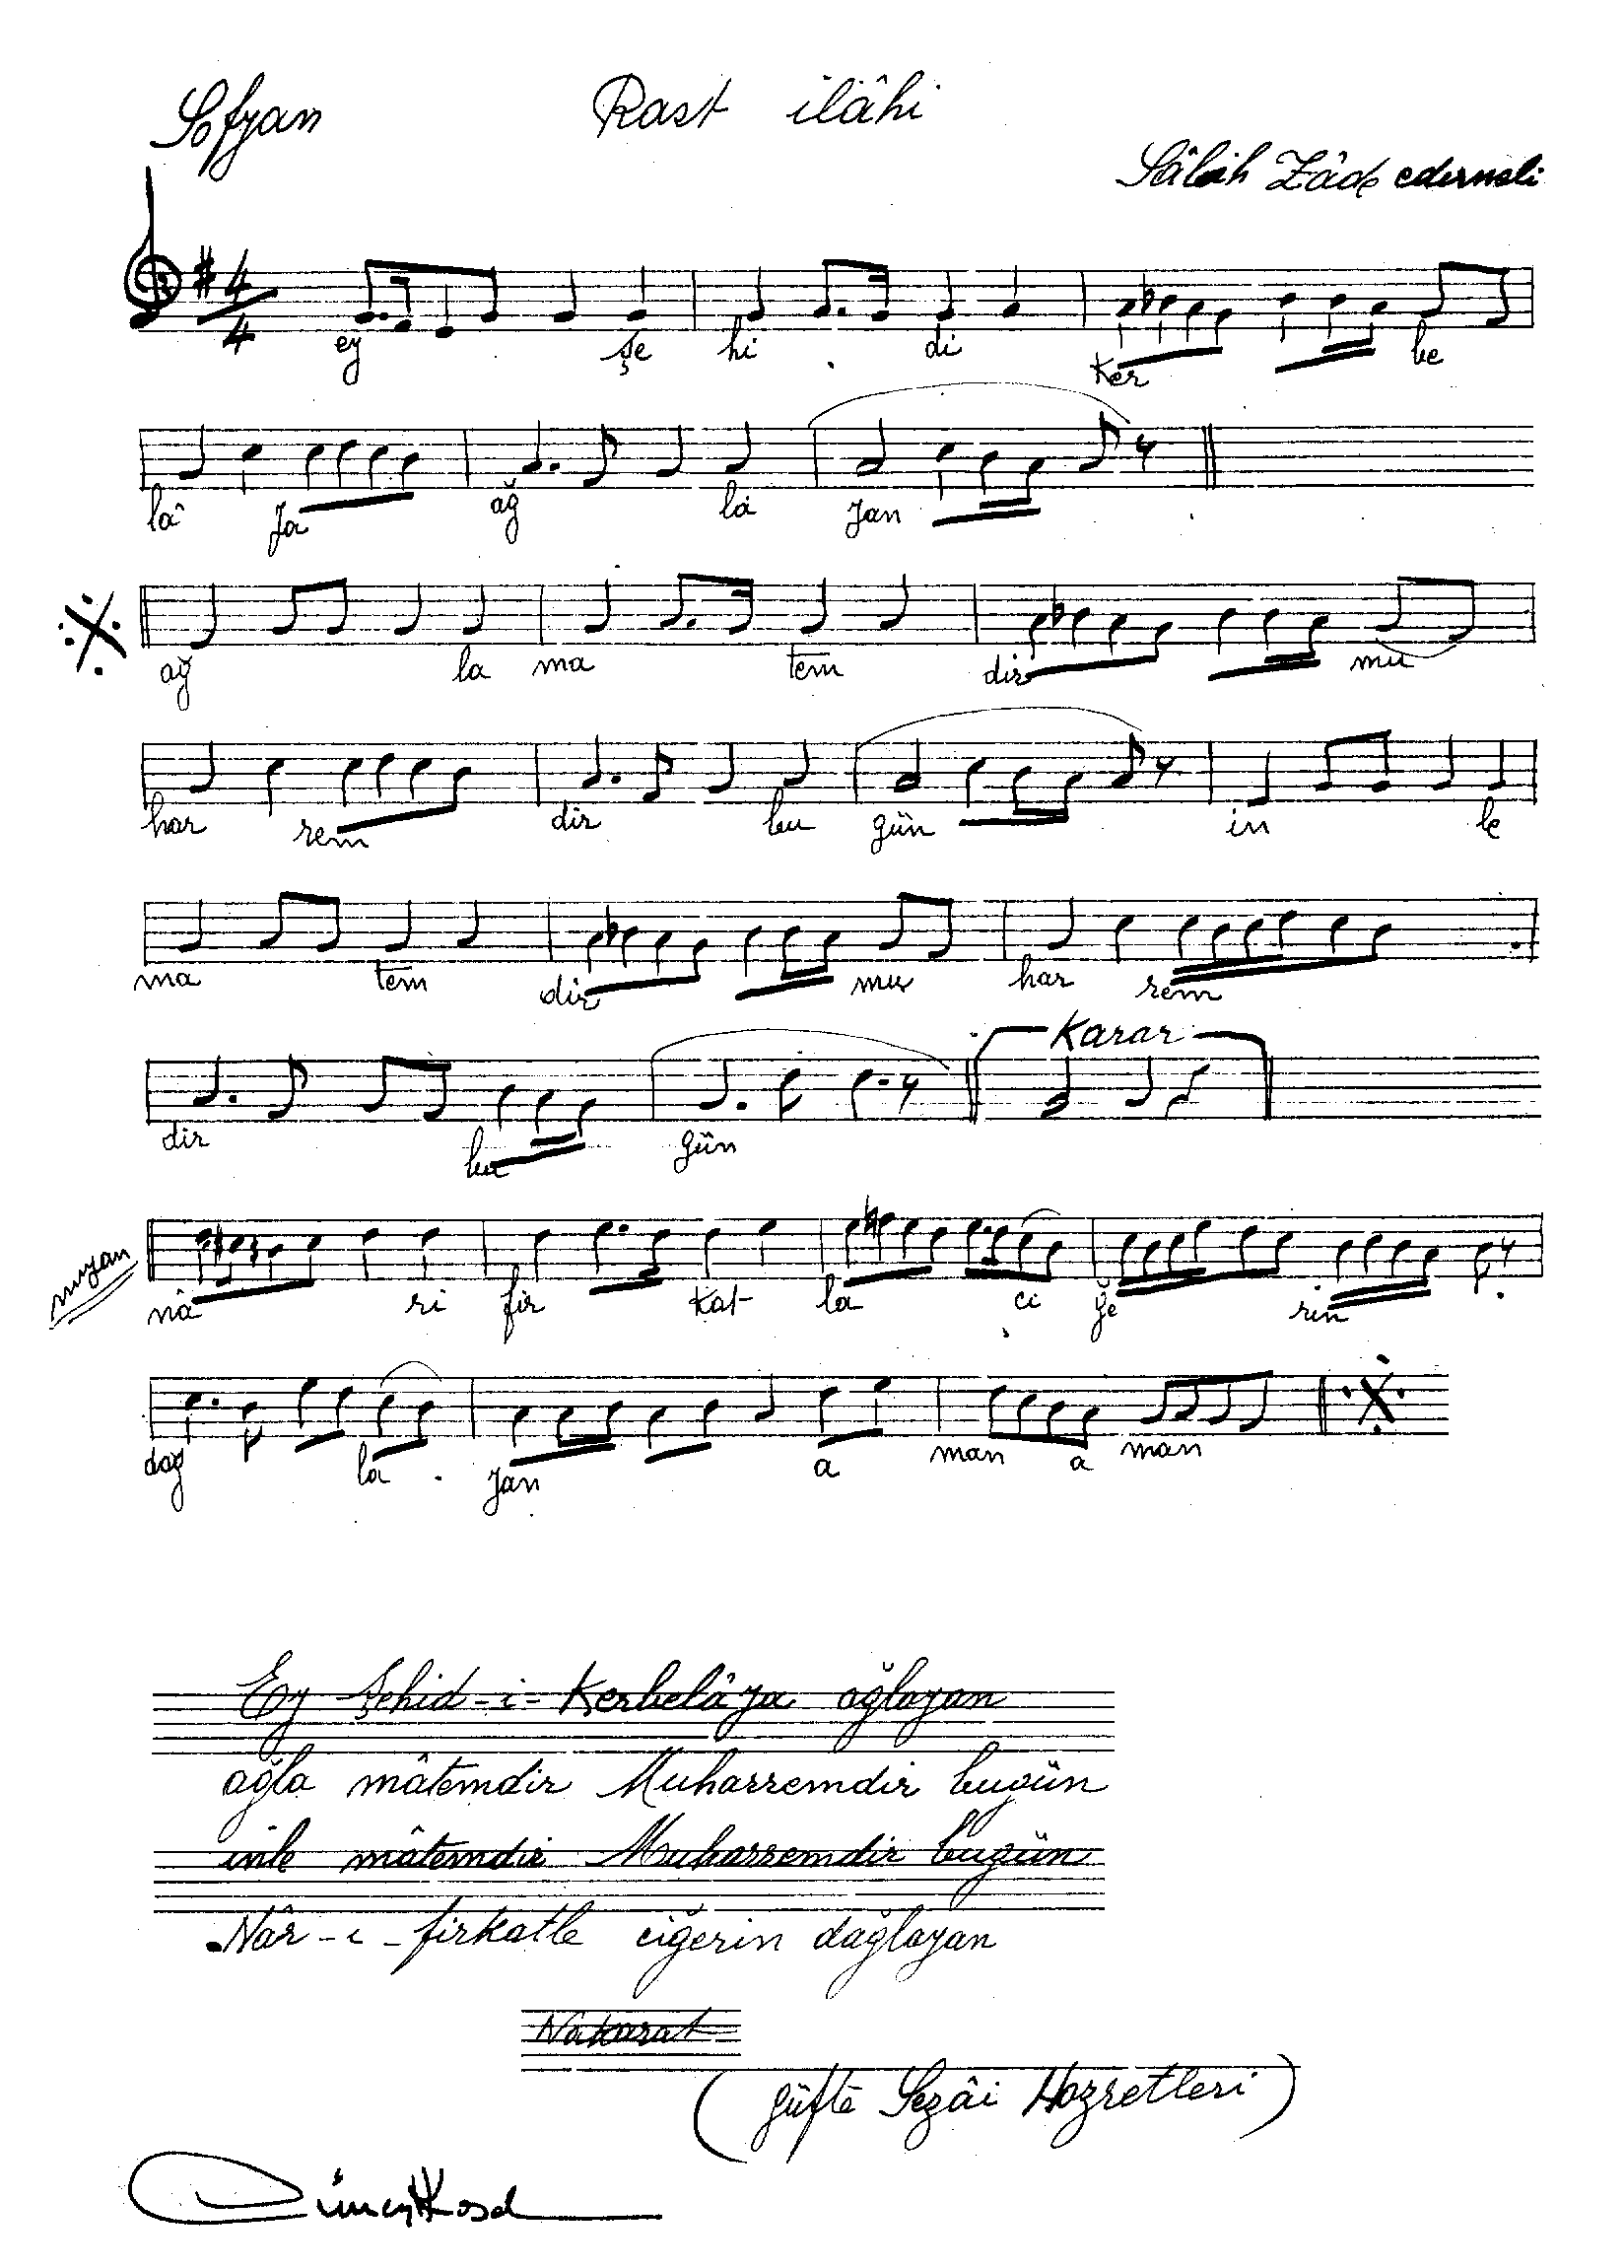 Sofyan
Rast ilâhi
Sâlâh Zâde edirneli
4
4
ey şe hi di Ker be
lâ Ja ağ la Jan
ağ la ma tem dir mu
har rem dir bu gün in le
ma tem dir mu har rem
Karar
dir bu gün
miyan
nâ ri fir kat la ci ğe rin
dağ la Jan a man a man
Ey Şehid-i-KerbelâJa ağlayan
ağla mâtemdir Muharremdir bugün
inle mâtemdir Muharremdir bugün
Nâr-ı-firkatle ciğerin dağlayan
Nâkarat
(güfte Sezâi Hazretleri)